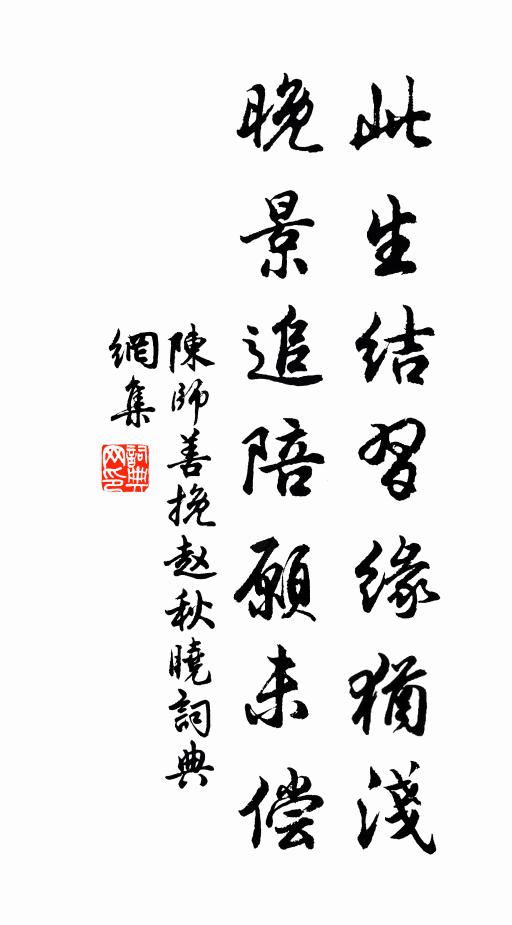 此生結習緣猶淺
晚景追陪願未偿
陳師善挽赵秋曉詞典
網集
詞典网印